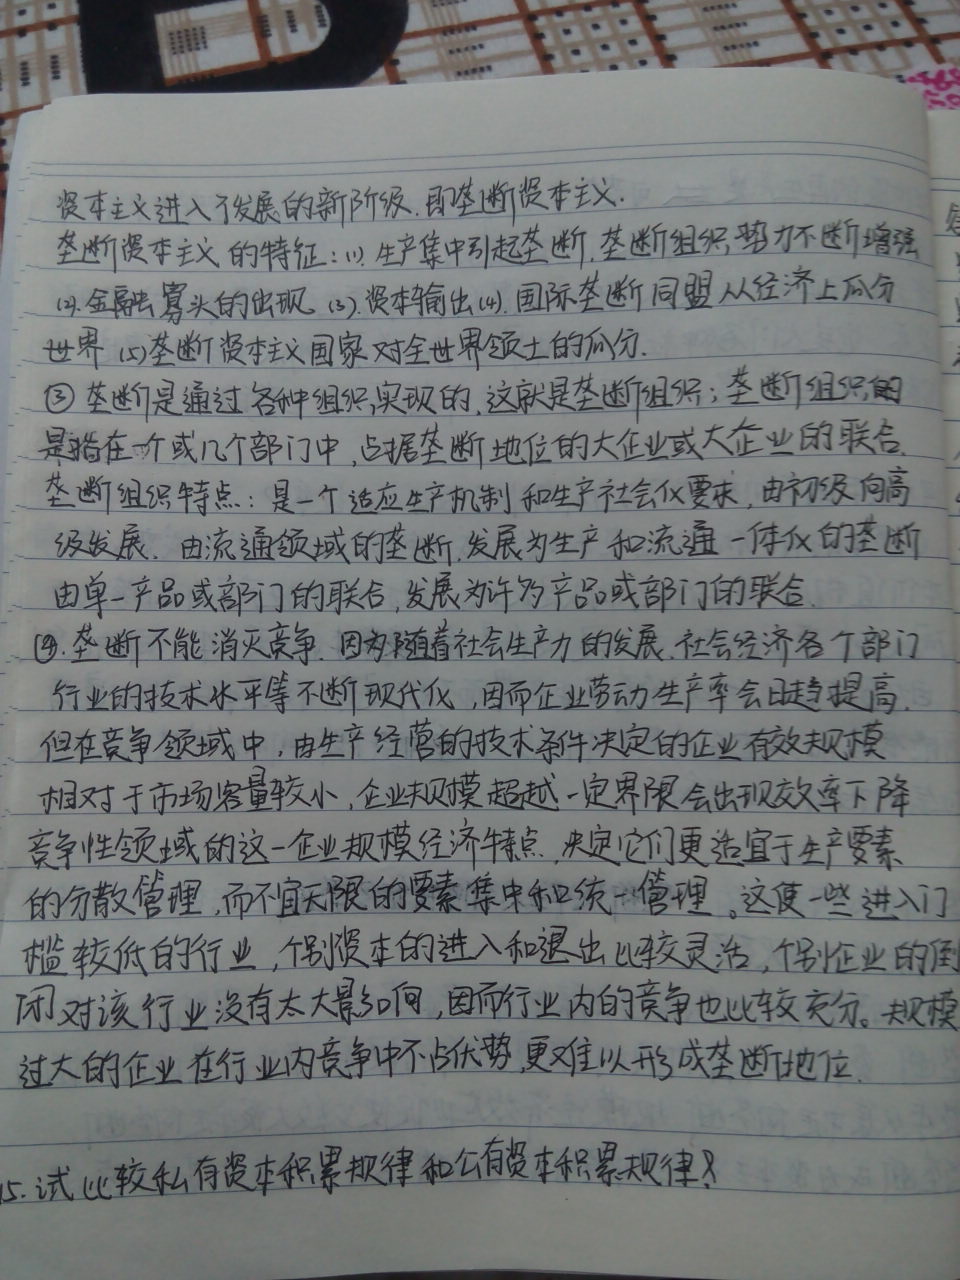 资本主义进入了发展的新阶级.即垄断资本主义.
垄断资本主义的特征:(1).生产集中引起垄断.垄断组织势力不断增强
(2).金融寡头的出现 (3).资本输出(4).国际垄断同盟从经济上瓜分
世界 (5)垄断资本主义国家对全世界领土的瓜分.
③垄断是通过各种组织实现的,这就是垄断组织;垄断组织
是指在一个或几个部门中,占据垄断地位的大企业或大企业的联合.
垄断组织特点:是一个适应生产机制和生产社会化要求,由初级向高
级发展.由流通领域的垄断.发展为生产和流通一体化的垄断
由单一产品或部门的联合,发展为许多产品或部门的联合.
④.垄断不能消灭竞争.因为随着社会生产力的发展.社会经济各个部门
行业的技术水平等不断现代化,因而企业劳动生产率会日趋提高.
但在竞争领域中,由生产经营的技术条件决定的企业有效规模
相对于市场容量较小,企业规模超越一定界限会出现效率下降
竞争性领域的这一企业规模经济特点,决定它们更适宜于生产要素
的分散管理,而不宜无限的要素集中和统一管理。这使一些进入门
槛较低的行业,个别资本的进入和退出比较灵活,个别企业的倒
闭对该行业没有太大影响,因而行业内的竞争也比较充分。规模
过大的企业在行业内竞争中不占优势,更难以形成垄断地位.
15.试比较私有资本积累规律和公有资本积累规律?